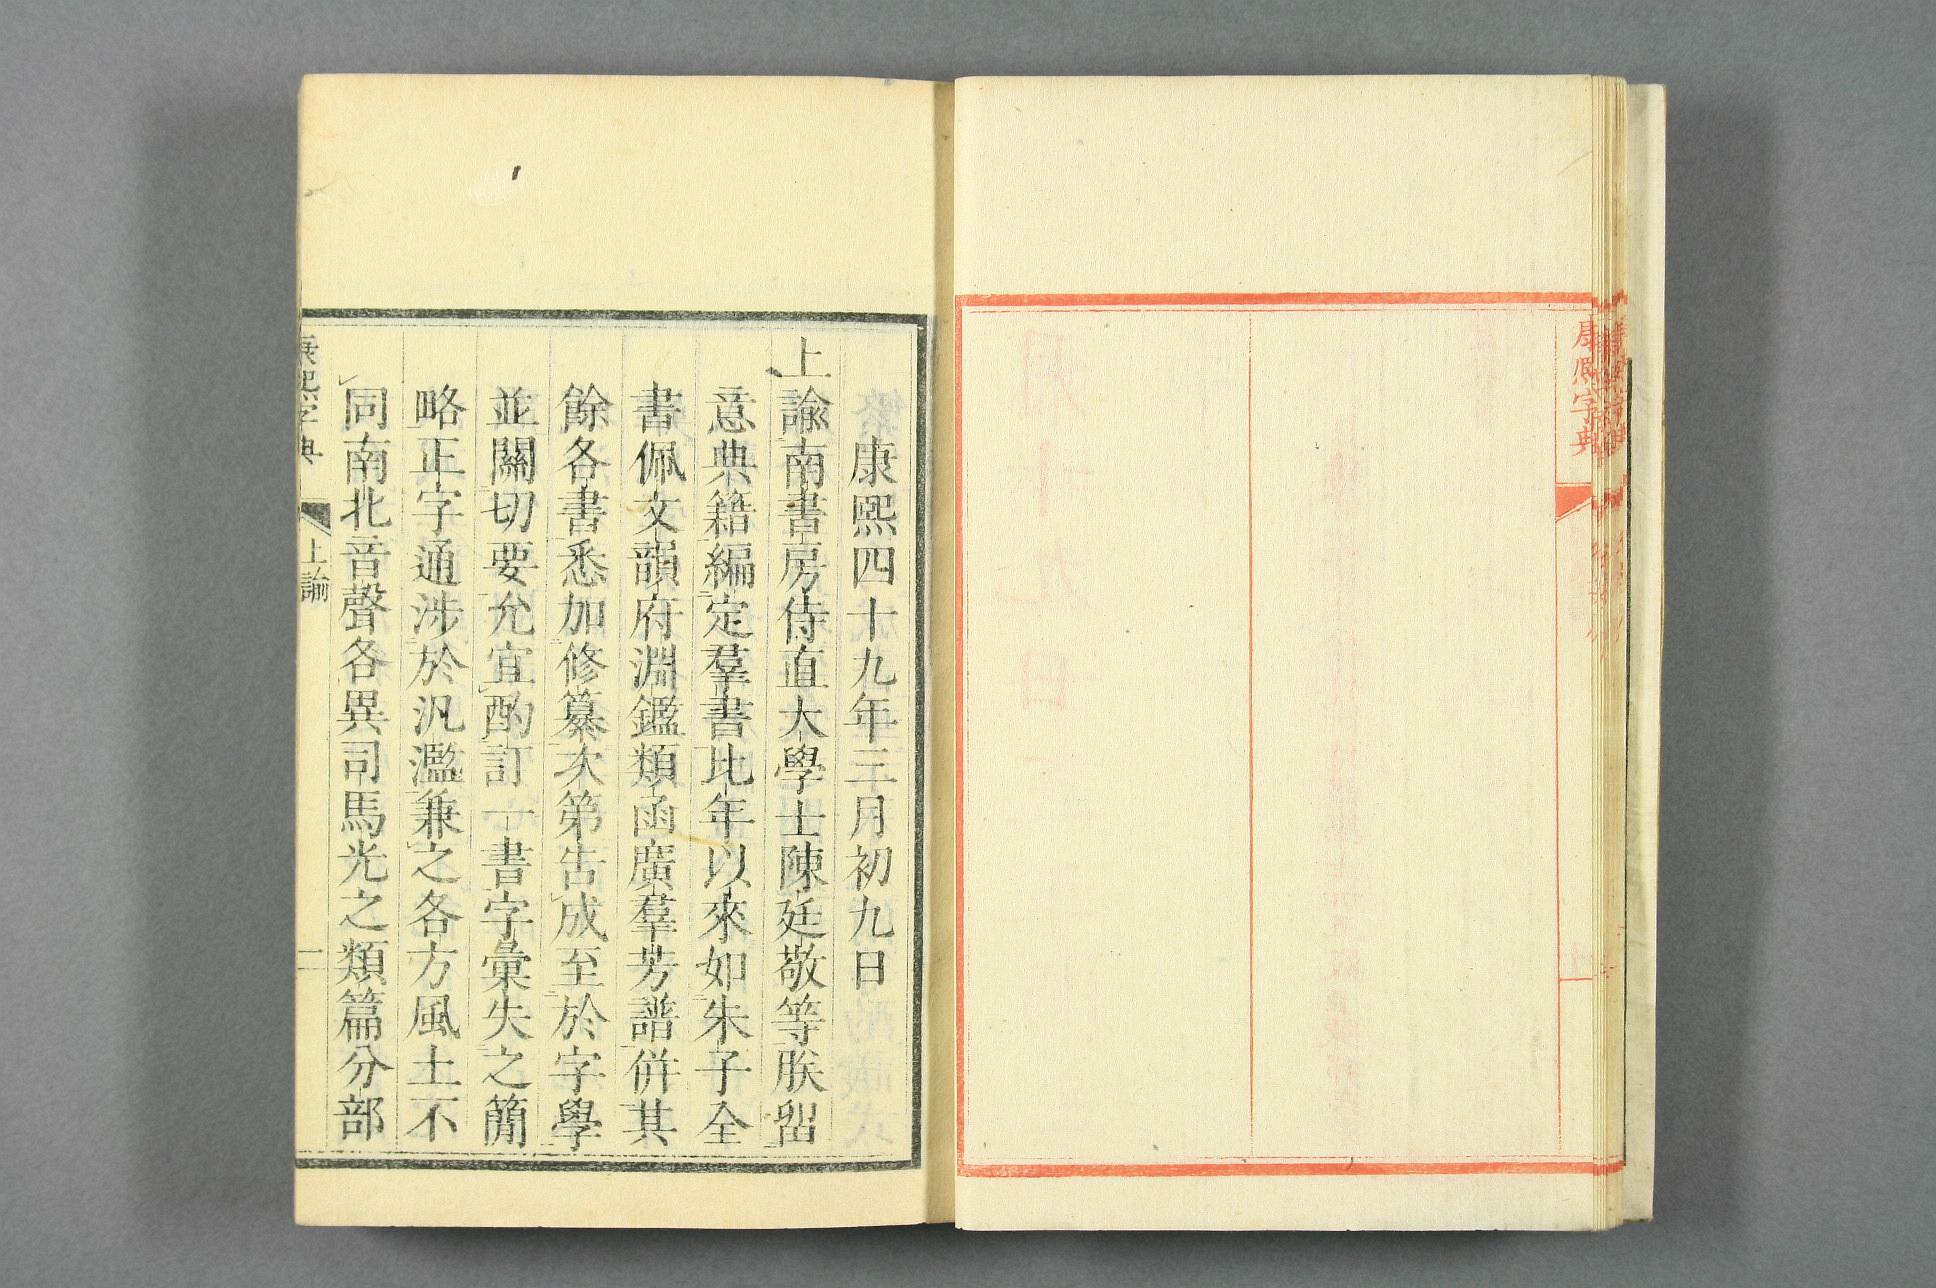 康熙字典
康熙四十九年三月初九日
上諭南書房侍直大學士陳廷敬等朕留
意典籍編定羣書比年以來如朱子全
書佩文韻府淵鑑類函廣羣芳譜併其
餘各書悉加修纂次第告成至於字學
並關切要允宜酌訂一書字彙失之簡
略正字通涉於汎濫兼之各方風土不
同南北音聲各異司馬光之類篇分部
康熙字典 上諭 一